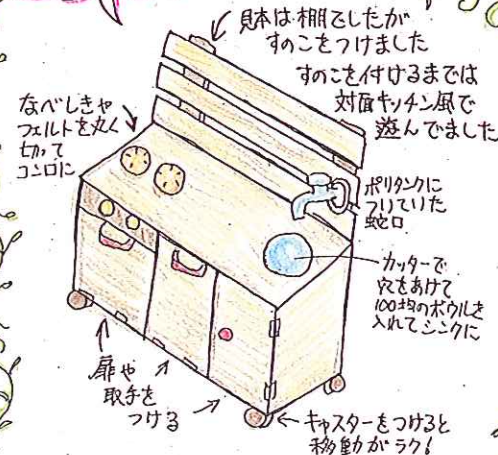 見本は棚でしたが
すのこをつけました
すのこを付けるまでは
対面キッチン風で
遊んでました
なべしきや
フェルトを丸く
切って
コンロに
ポリタンクに
ついていた
蛇口
カッターで
穴をあけて
100均のボウルを
入れてシンクに
扉や
取手を
つける
キャスターをつけると
移動がラク!